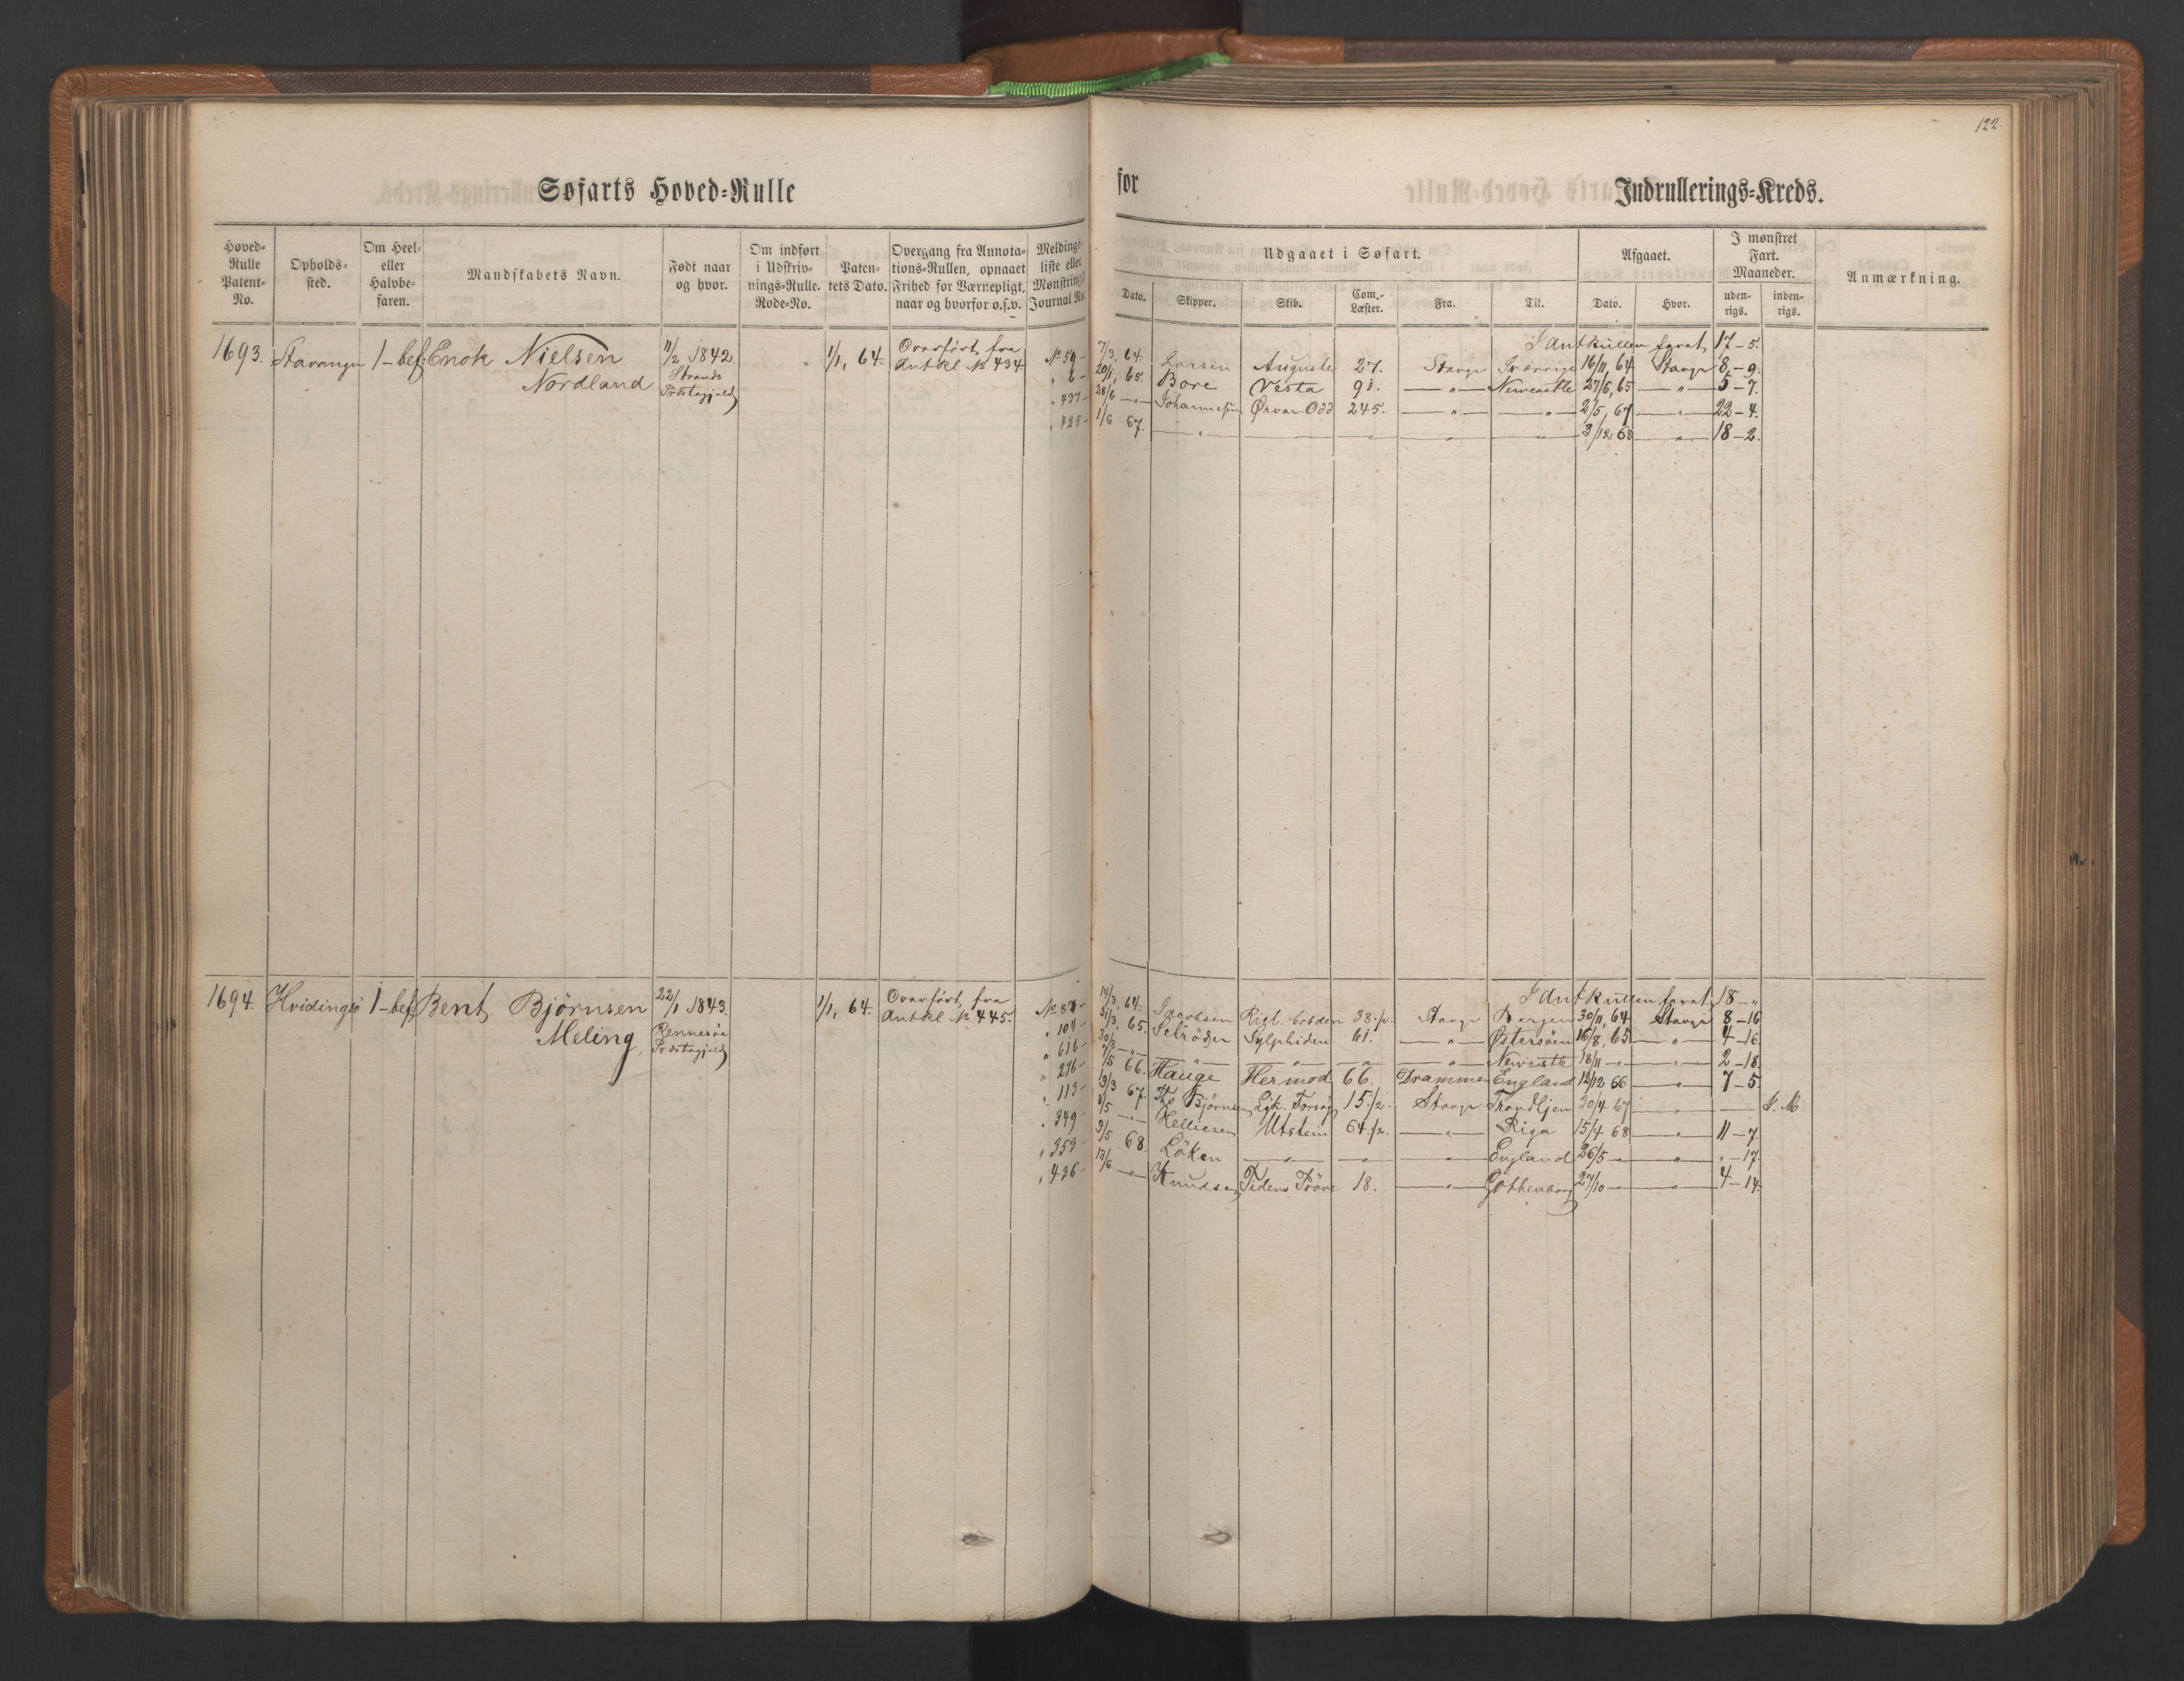 122.
Søfarts Hoved-Rulle
for
Indrullerings-Kreds.
Hoved-Rulle Patent-No.
Opholds-sted.
Om Heel- eller Halvbe-faren.
Mandskabets Navn.
Født naar og hvor.
Om indført i Udskriv-nings-Rulle. Rode-No.
Paten-tets Dato.
Overgang fra Annota-tions-Rullen, opnaaet Frihed for Værnepligt, naar og hvorfor o.s.v.
Meldings-liste eller Mønstrings Journal No.
Udgaaet i Søfart.
Dato. Skipper. Skib. Com.-Læster. Fra. Til.
Afgaaet.
Dato. Hvor.
I mønstret Fart. Maaneder.
uden-rigs. inden-rigs.
Anmærkning.
1693. Stavanger 1-bef. Enok Nielsen
Nordland
11/2 1842
Strands
Præstegjeld
1/1, 64.
Overført fra
Antrl No 434
I Antrullen faret 17-5.
No 59- 7/3, 64. Larsen Auguste 27. Stavgr Sverrige 16/11, 64 Stavgr 8-9.
" 6- 20/1, 65. Bore Vesta 91. -"- Newcastle 27/6, 65 -"- 5-7.
" 437- 28/6 -"- Johannesen Ørvar-Odd 245. -"- -"- 2/5, 67 -"- 22-4.
" 425- 1/6 67. -"- 3/12 68 -"- 18-2.
1694. Hvidingsø 1-bef. Bent Björnsen
Meling
22/1 1843.
Rennesøe
Præstegjeld
1/1, 64.
Overført fra
Antrl No 445.
I Antrullen faret 18-"
14/3, 64. Jacobsen 38 1/2. Stavgr Bergen 30/11, 64 Stavgr 8-16
" 104- 31/3, 65. Schröder Sylphiden 61. -"- Østersöen 16/8, 65 -"- 4-16.
" 616- 30/8 -"- -"- -"- -"- -"- Newcastle 18/11 -"- -"- 2-18.
" 276- 7/5 66. Hauge Hermod 66. Drammen England 12/12 66 -"- 7-5.
" 113- 19/3 67. Ths Björnsen Forsøg 15 1/2. Stavgr Trondhjem 30/4 67 -"- — I. M.
" 349- 8/5 -"- Helliesen Utstein 64 1/2. -"- Riga 15/4 68 -"- 11-7.
" 353- 9/5 68. Löken -"- -"- -"- England 26/5 -"- -"- "-17.
" 436- 13/6 -"- Knudsen Tidens Pröve 18. -"- Gothenborg 27/10 -"- -"- 4-14.